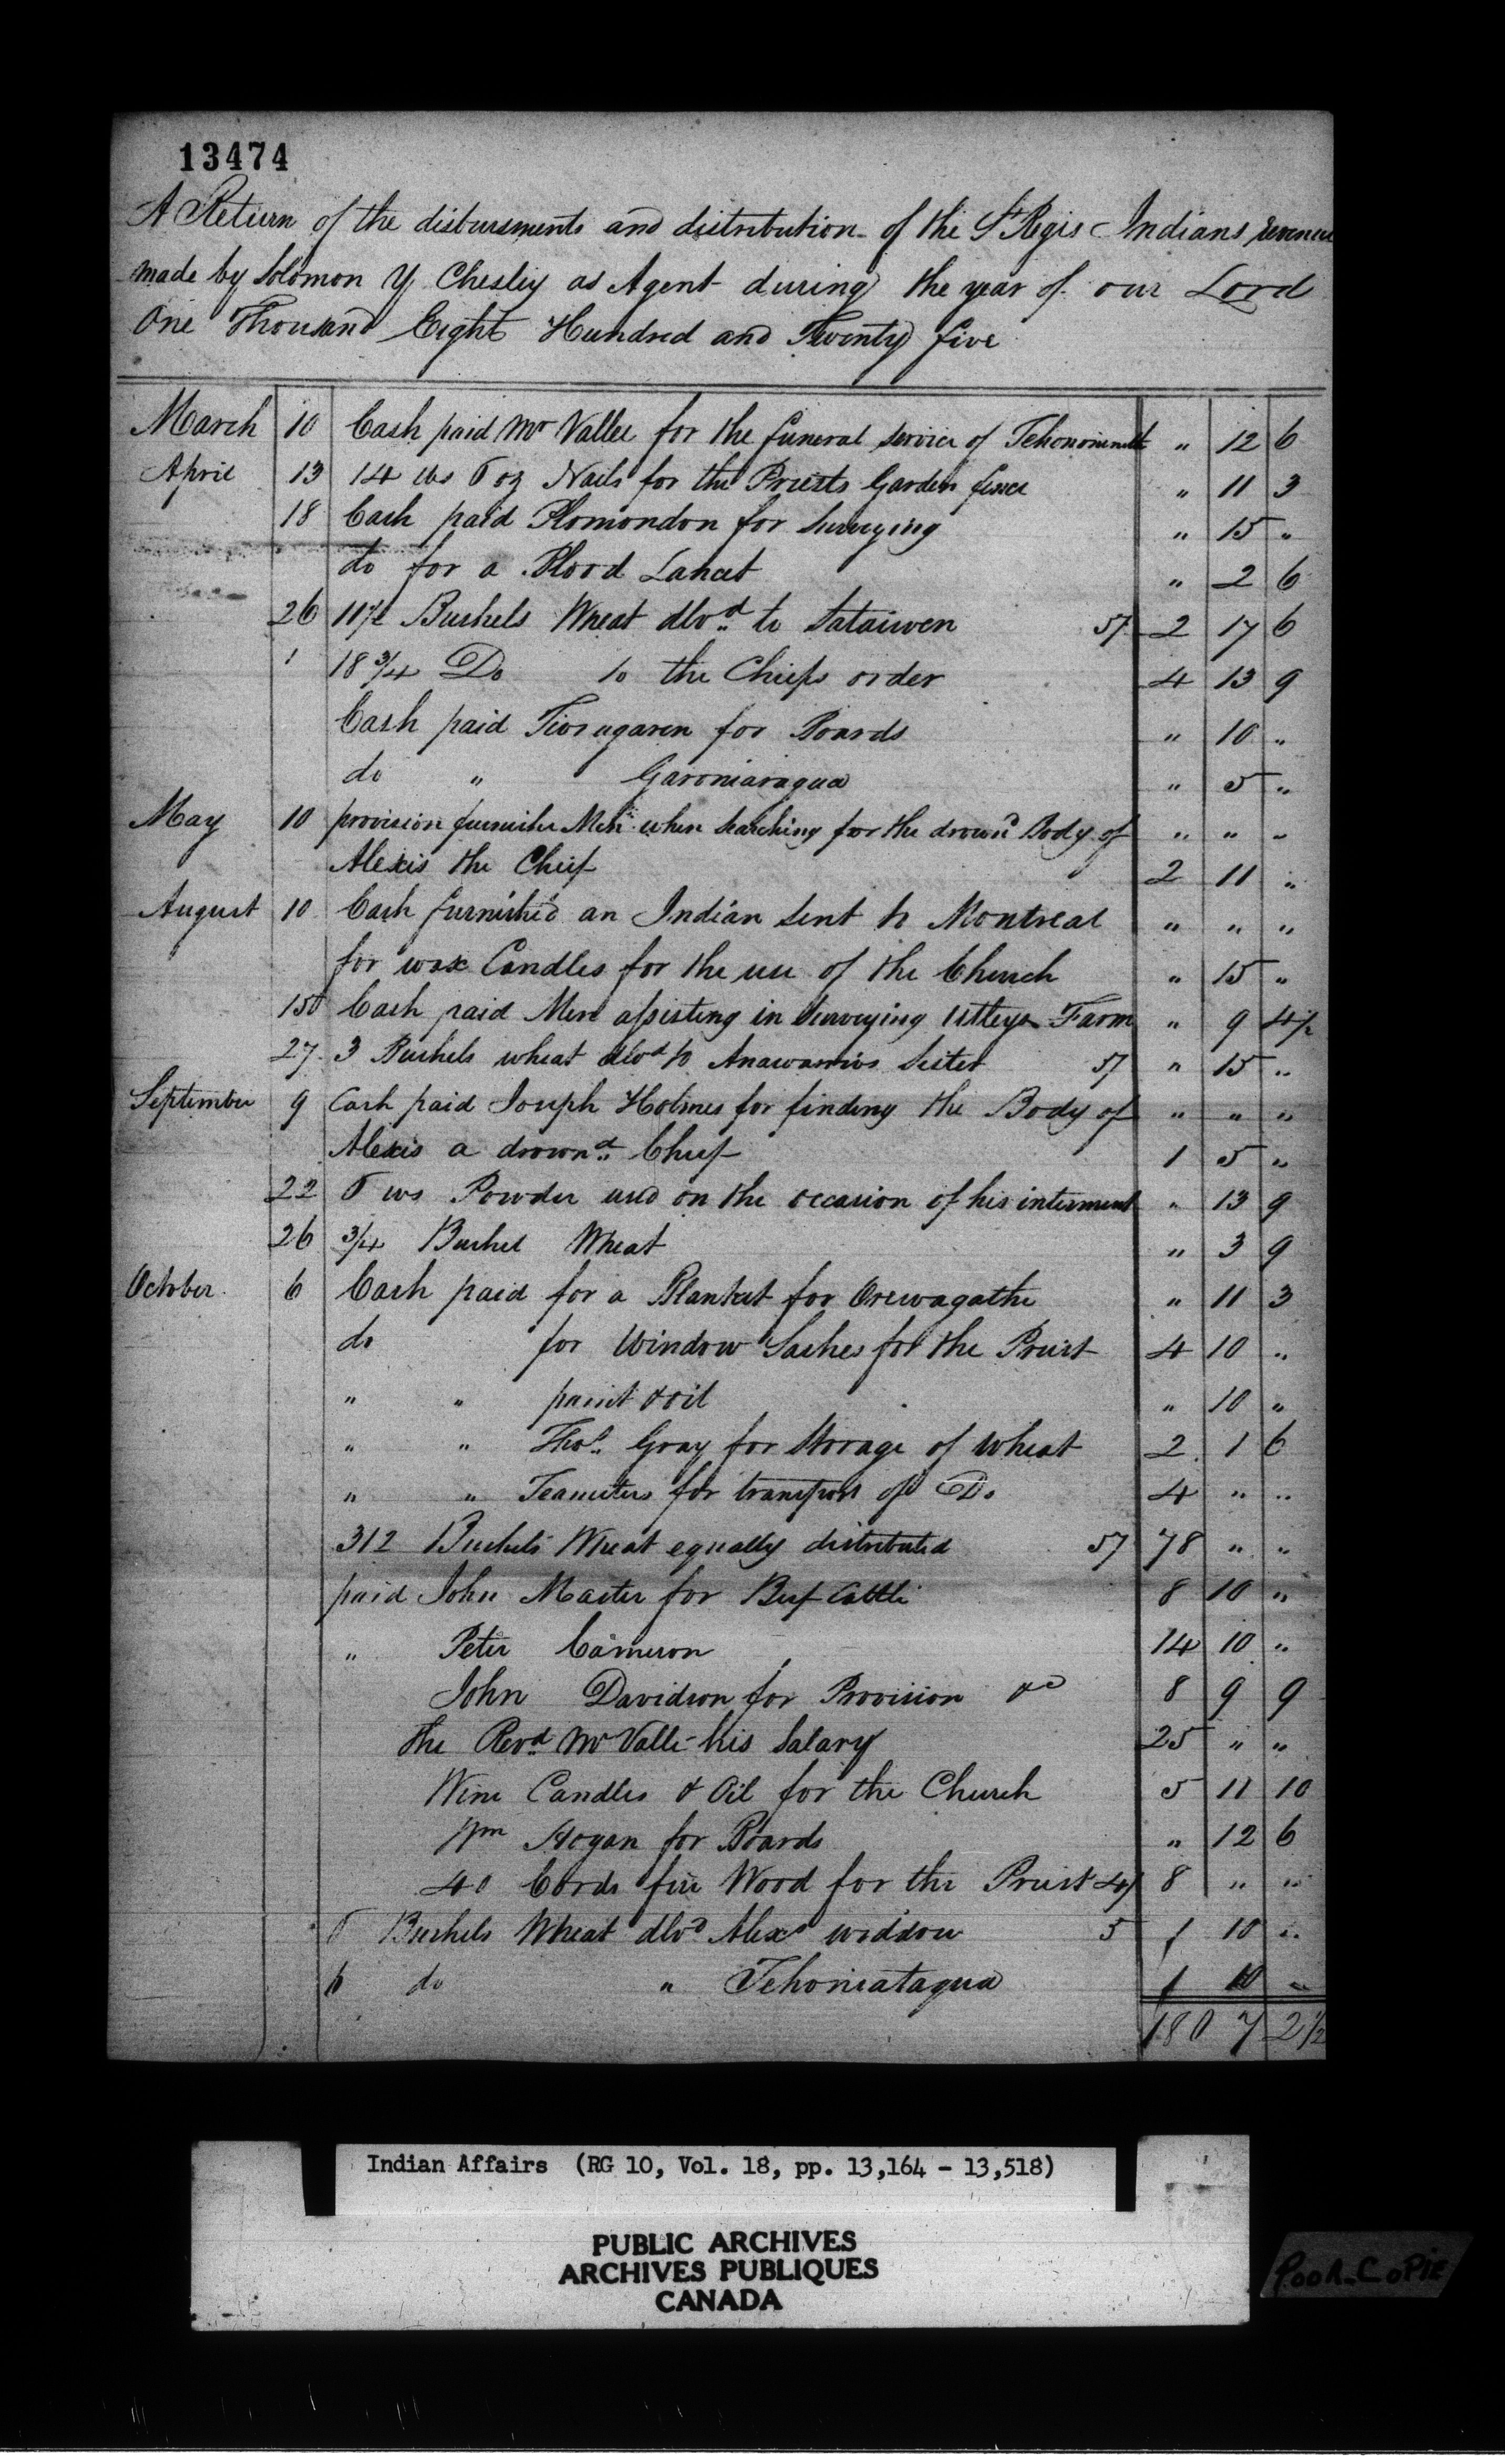 13474
A Return of the disbursments and distribution of the St Regis Indians revenue
made by Solomon Y Chesley as Agent during the year of our Lord
One Thousand Eight Hundred and Twenty five
March 10 Cash paid Mr Vallee for the funeral service of " 12 6
April 13 14 lbs 6 oz Nails for the Priests Garden fence " 11 3
18 Cash paid Plomondon for Surveying " 15 "
do for a Blood Lancet " 2 6
26 11½ Bushels Wheat dlvd to Sataiwen 5/ 2 17 6
" 18 3/4 Do to the Chiefs order 4 13 9
Cash paid Tiorugaren for Boards " 10 "
do " Garoniaragua " 5 "
May 10 provision furnishd Men when searching for the drownd Body of " " "
Alexis the Chief 2 11 "
August 10 Cash furnish'd an Indian sent to Montreal " " "
for wax Candles for the use of the Church " 15 "
15 Cash paid Men assisting in Surveying Utleys Farm " 9 4½
27 3 Bushels wheat dlvd to Anawarrios Sister 5/ " 15 "
September 9 Cash paid Joseph Holmes for finding the Body of " " "
Alexis a drownd Chief 1 5 "
22 6 lbs Powder used on the occasion of his interment " 13 9
26 3/4 Bushel Wheat " 3 9
October 6 Cash paid for a Blanket for Orewagathe " 11 3
do for Window Sashes for the Priest 4 10 "
" " paint & oil " 10 "
" " Thos Gray for Storage of Wheat 2 1 6
" " Teamsters for transport of Do 4 " "
312 Bushels Wheat equally distributed 5/ 78 " "
paid John Master for Beef Cattle 8 10 "
" Peter Cameron 14 10 "
John Davidson for Provision &c 8 9 9
the Revd Mr Valle his Salary 25 " "
Wine Candles & Oil for the Church 5 11 10
Wm Hogan for Boards " 12 6
40 Cords fire Wood for the Priest 4/ 8 " "
6 Bushels Wheat dlvd Alexs widdow 5 1 10 "
6 do " Tehoniataqua 1 10 "
180 7 2½
Indian Affairs (RG 10, Vol. 18, pp. 13,164 - 13,518)
PUBLIC ARCHIVES
ARCHIVES PUBLIQUES
CANADA
POOR COPIE